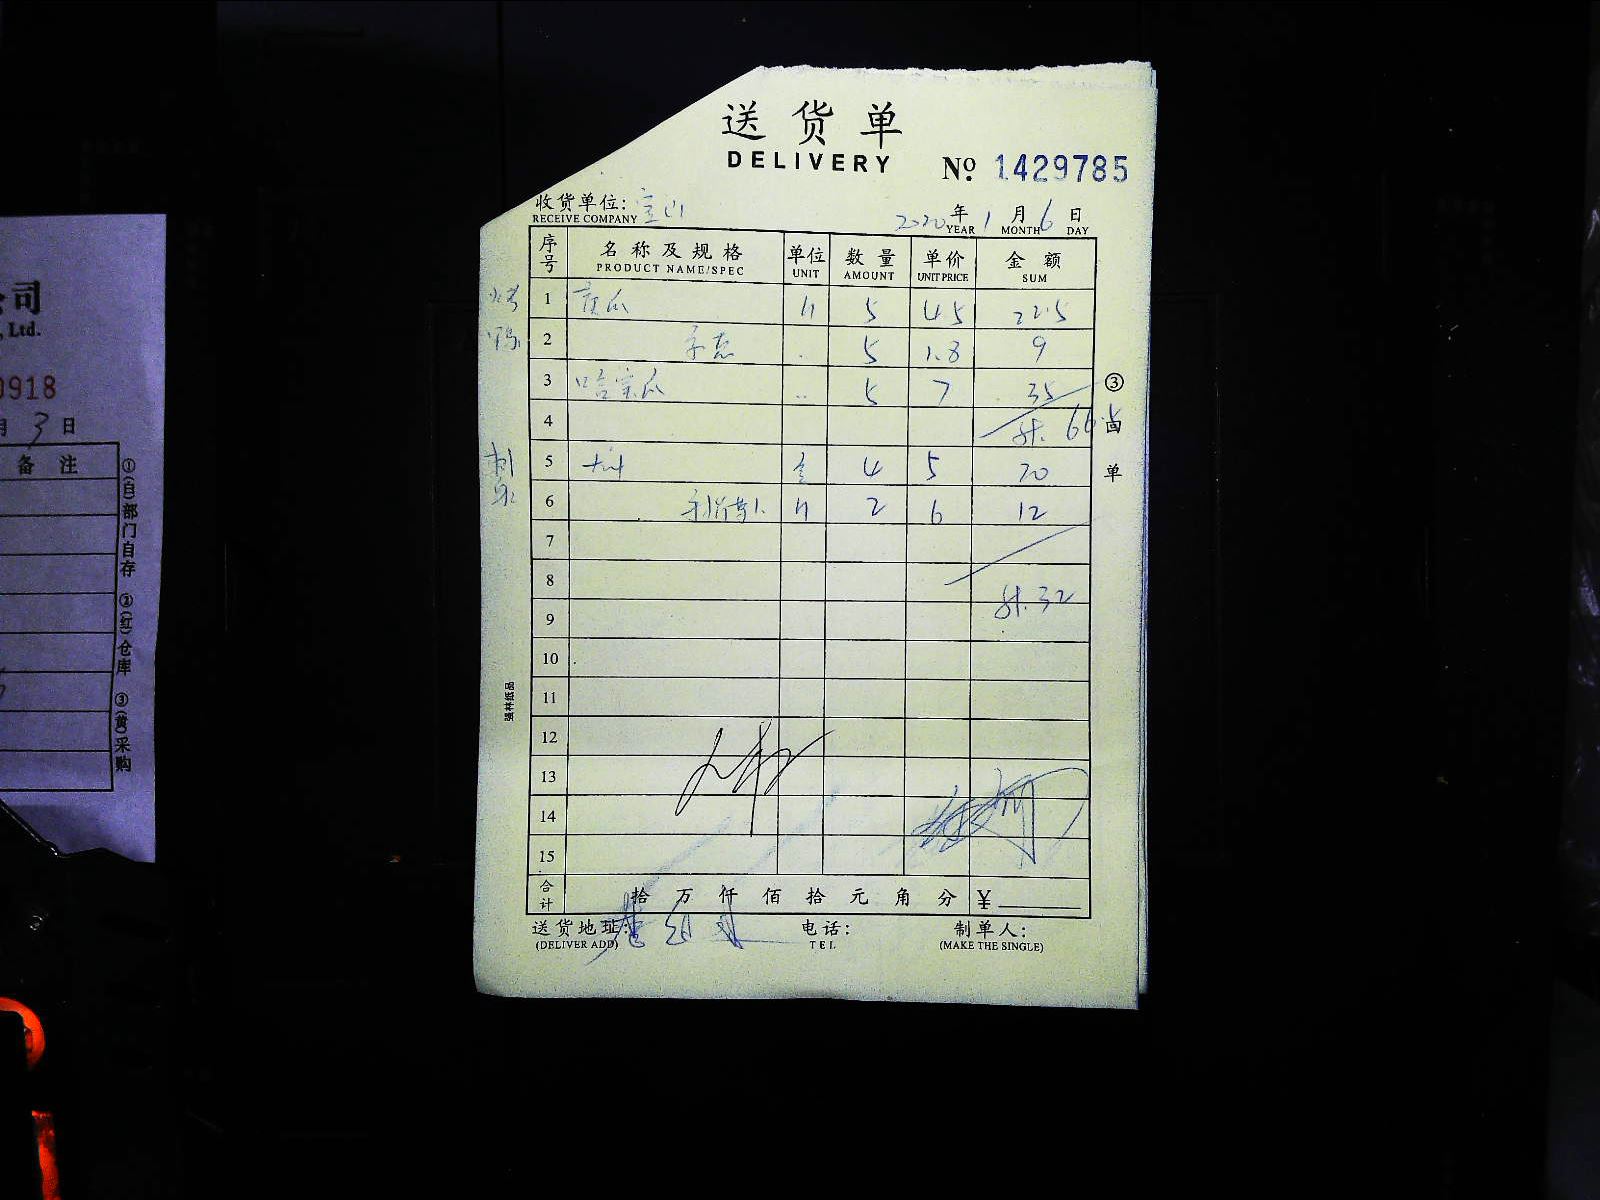 公司
, Ltd.
0918
月 3 日
备 注
①(白)部门自存 ②(红)仓库 ③(黄)采购
送货单
DELIVERY
№ 1429785
收货单位: 宝山
RECEIVE COMPANY
2020 年 1 月 6 日
YEAR MONTH DAY
序号 名称及规格 单位 数量 单价 金额
PRODUCT NAME/SPEC UNIT AMOUNT UNIT PRICE SUM
1 黄瓜 5 4.5 22.5
2 5 1.8 9
3 哈密瓜 5 7 35
4 计. 66.5
5 4 5 20
6 2 6 12
7
8
计. 32
9
10
11
12
13
14
15
合计 拾 万 仟 佰 拾 元 角 分 ¥
送货地址: 电话: 制单人:
(DELIVER ADD) TEL (MAKE THE SINGLE)
③ 回单
强林纸品